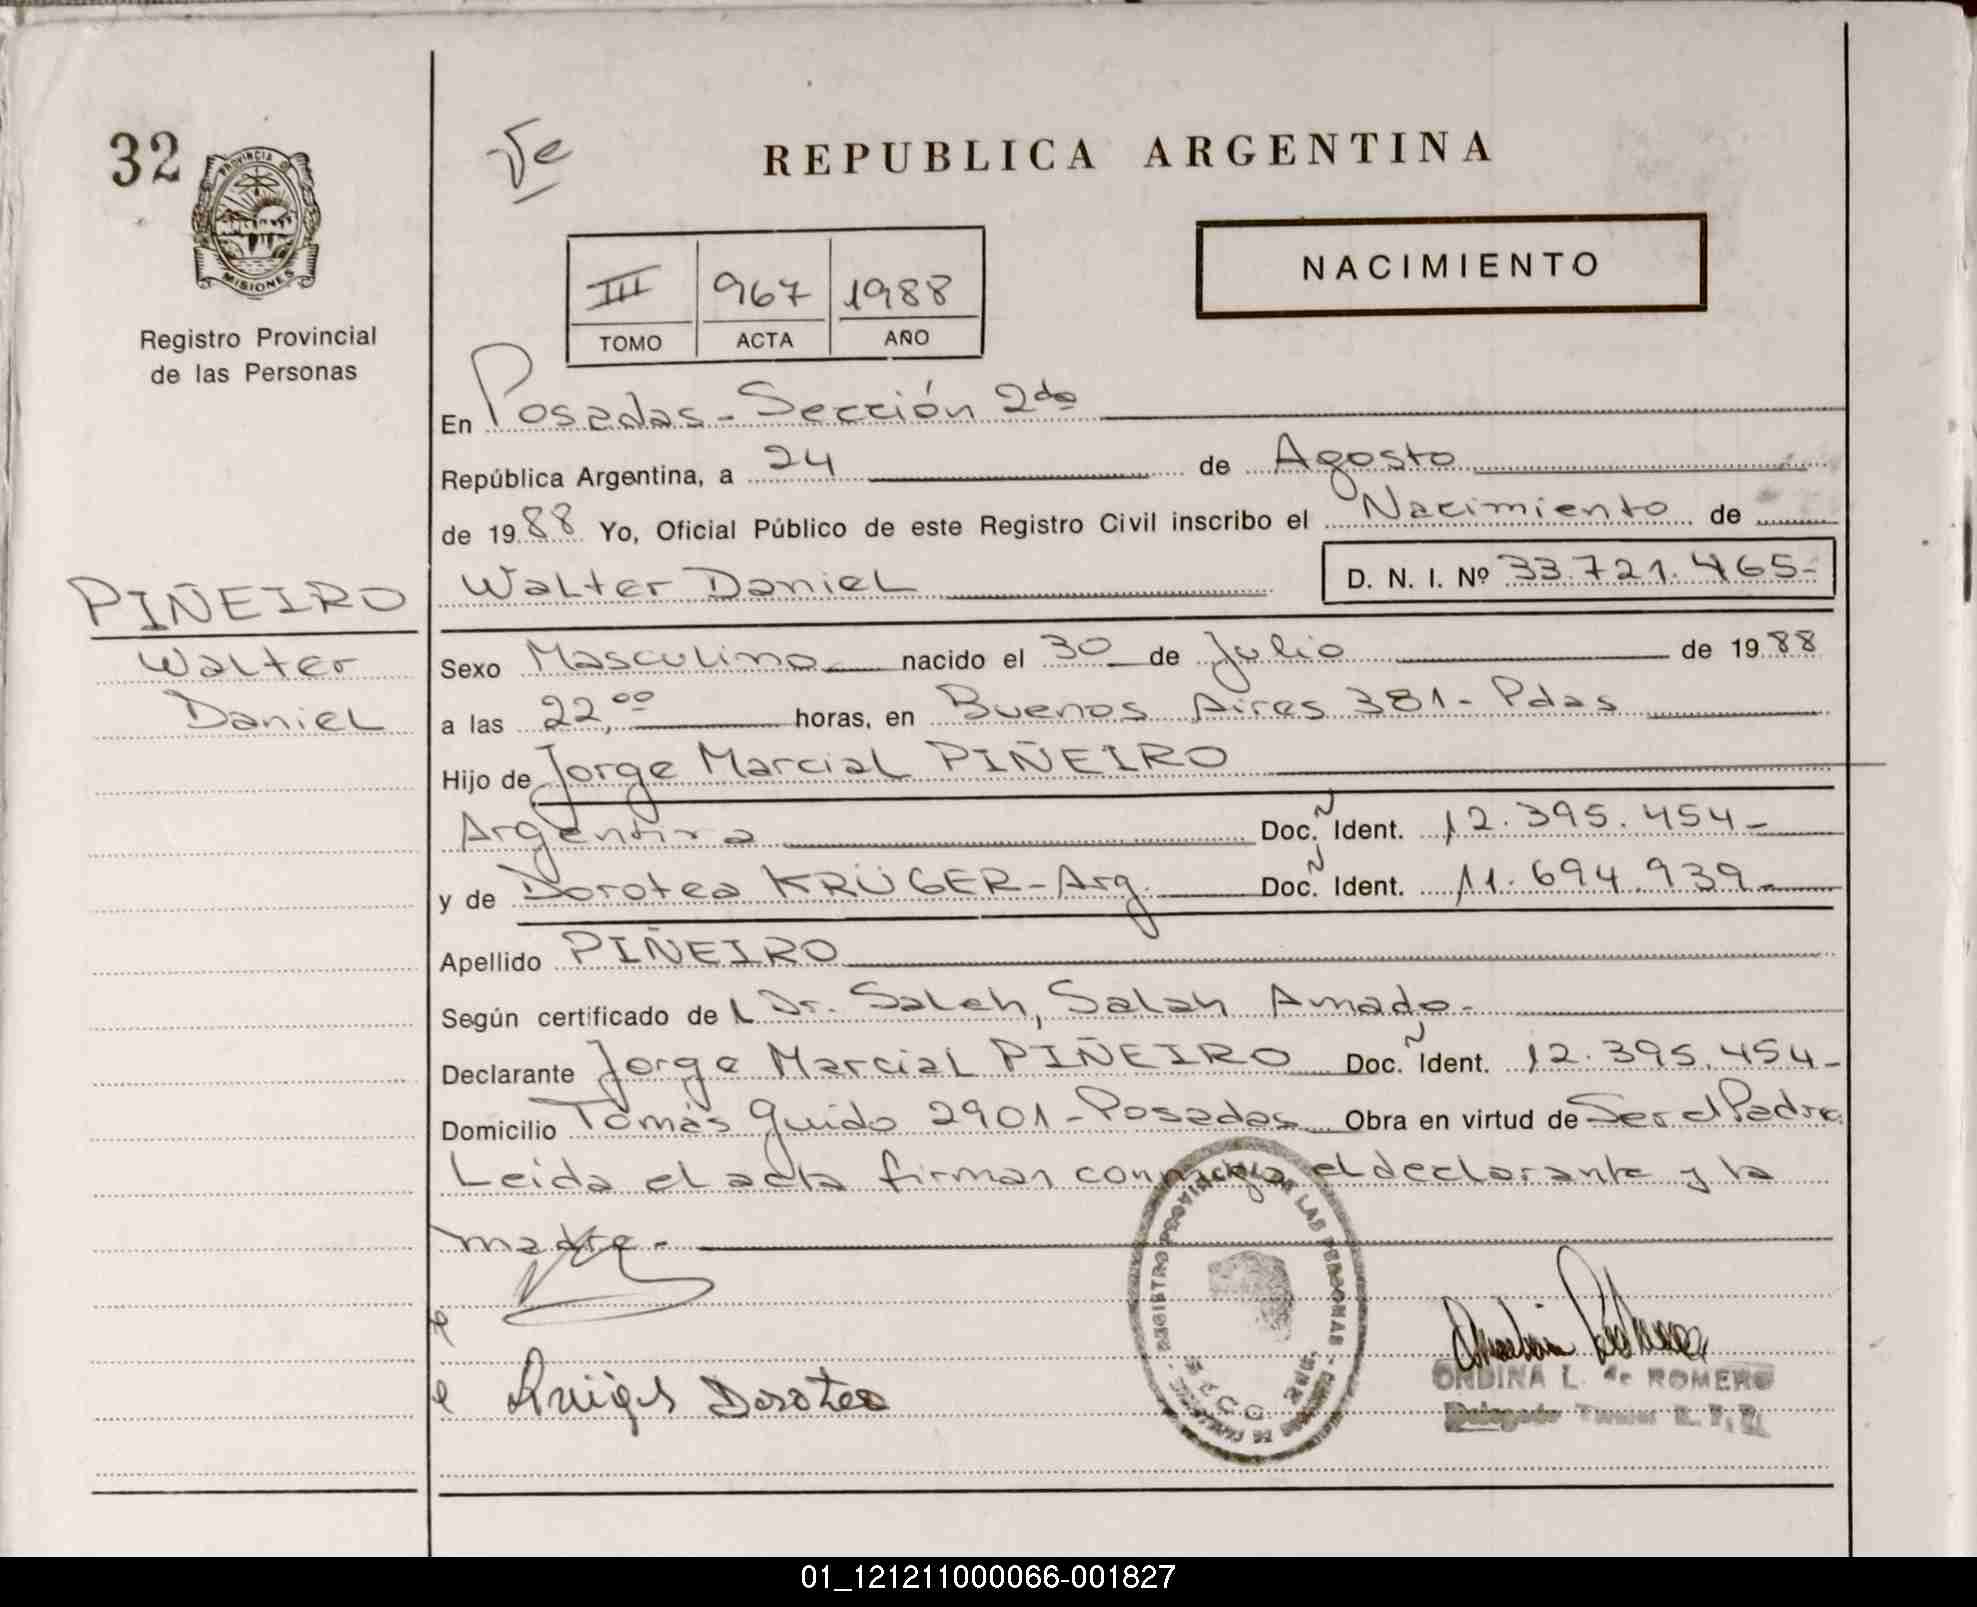 32
PROVINCIA DE
MISIONES
Registro Provincial
de las Personas
REPUBLICA ARGENTINA
NACIMIENTO
III 967 1988
TOMO ACTA AÑO
En Posadas - Sección 2da
República Argentina, a 24 de Agosto
de 1988 Yo, Oficial Público de este Registro Civil inscribo el Nacimiento de
Walter Daniel D. N. I. Nº 33.721.465-
PIÑEIRO
Walter
Daniel
Sexo Masculino nacido el 30 de Julio de 1988
a las 22,00 horas, en Buenos Aires 381 - Pdas
Hijo de Jorge Marcial PIÑEIRO
Argentina Doc. Ident. 12.395.454-
y de Dorotea KRÜGER - Arg. Doc. Ident. 11.694.939-
Apellido PIÑEIRO
Según certificado del Dr. Saleh, Salah Amado-
Declarante Jorge Marcial PIÑEIRO Doc. Ident. 12.395.454-
Domicilio Tomás Guido 2901 - Posadas Obra en virtud de Ser el Padre
Leida el acta firman conmigo el declarante y la
madre.-
REGISTRO PROVINCIAL DE LAS PERSONAS
Dorotea
ONDINA L. de ROMERO
Delegado Titular R. P. P.
01_121211000066-001827